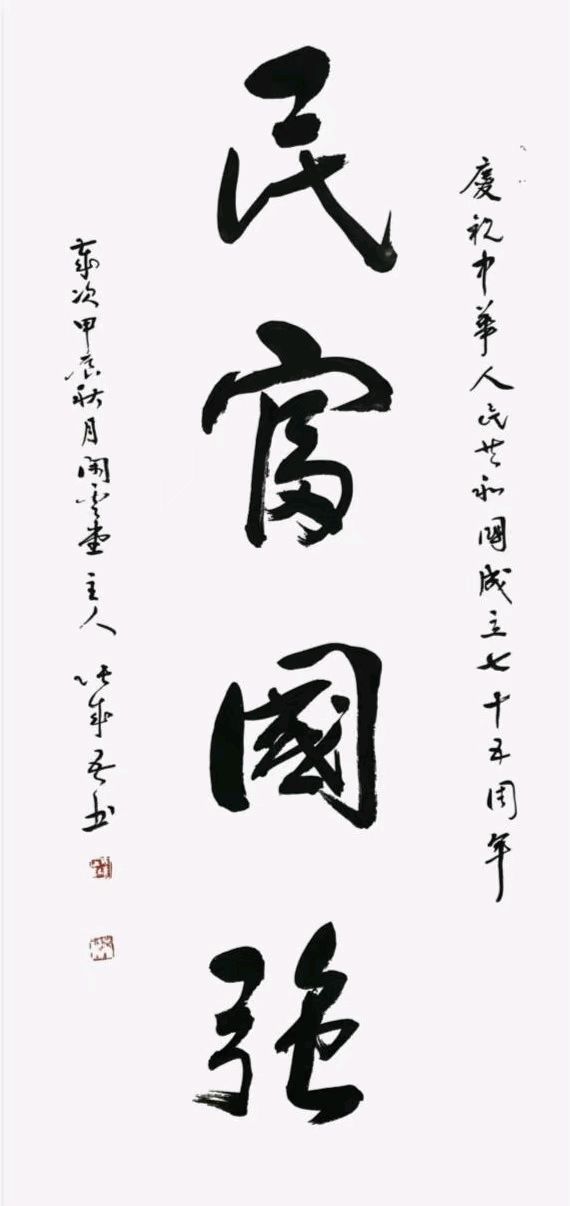 慶祝中華人民共和國成立七十五周年
民富國強
歲次甲辰秋月閑雲堂主人 書